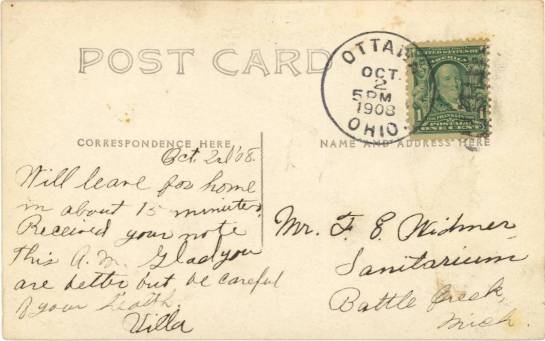 POST CARD
OTTAWA
OCT.
2
5 PM
1908
OHIO.
UNITED STATES OF AMERICA
1 1
POSTAGE
ONE CENT
CORRESPONDENCE HERE
Oct. 2nd '08.
Will leave for home
in about 15 minutes.
Received your note
this A.M. Glad you
are better but be careful
of your health.
Villa
NAME AND ADDRESS HERE
Mr. F. E. Widmer
Sanitarium
Battle Creek,
Mich.